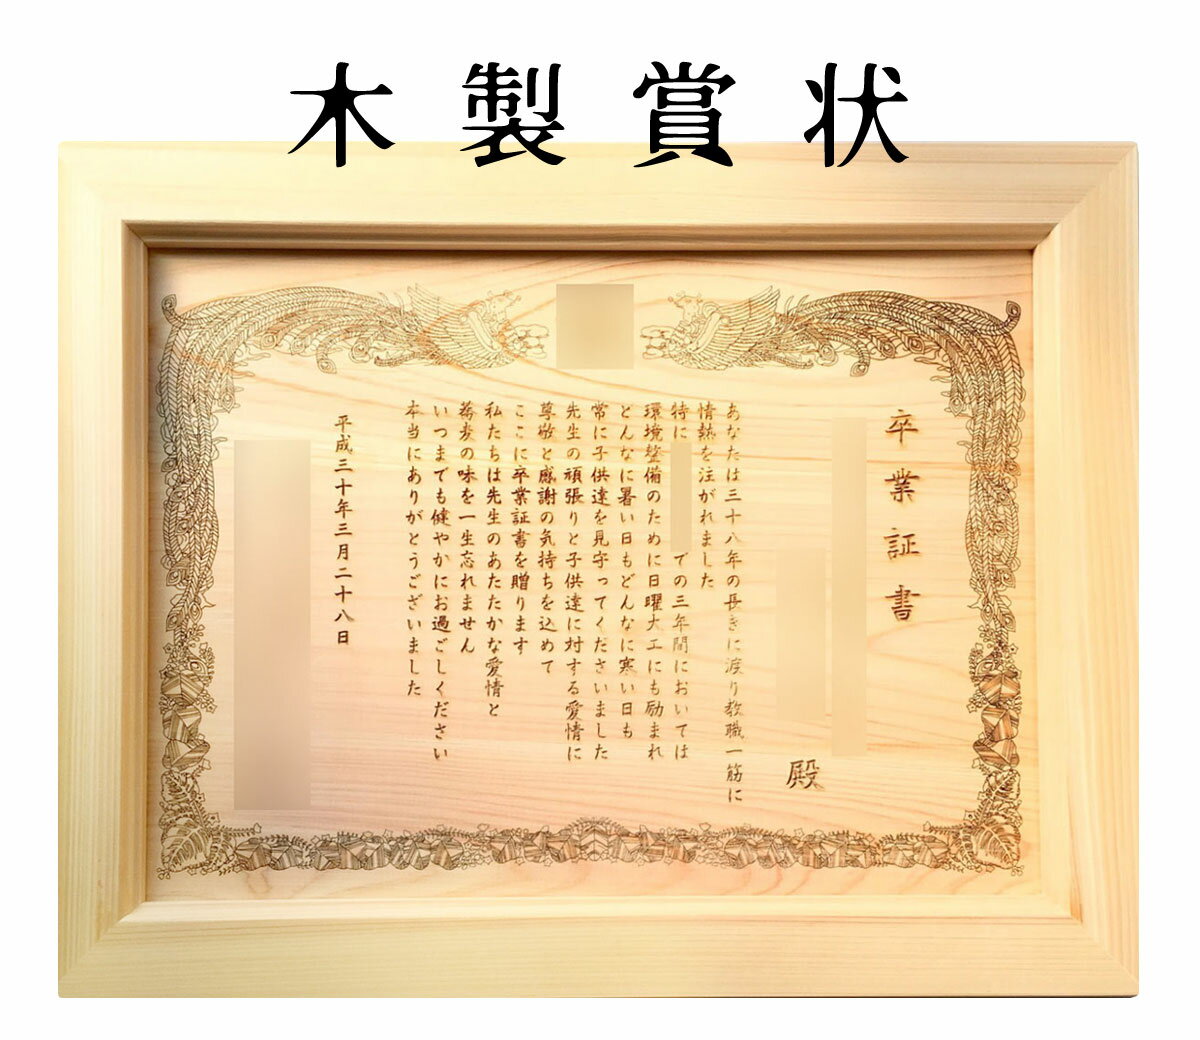 木製賞状
卒業証書
殿
あなたは三十八年の長きに渡り教職一筋に
情熱を注がれました
特に
での三年間においては
環境整備のために日曜大工にも励まれ
どんなに暑い日もどんなに寒い日も
常に子供達を見守ってくださいました
先生の頑張りと子供達に対する愛情に
尊敬と感謝の気持ちを込めて
ここに卒業証書を贈ります
私たちは先生のあたたかな愛情と
蕎麦の味を一生忘れません
いつまでも健やかにお過ごしください
本当にありがとうございました
平成三十年三月二十八日